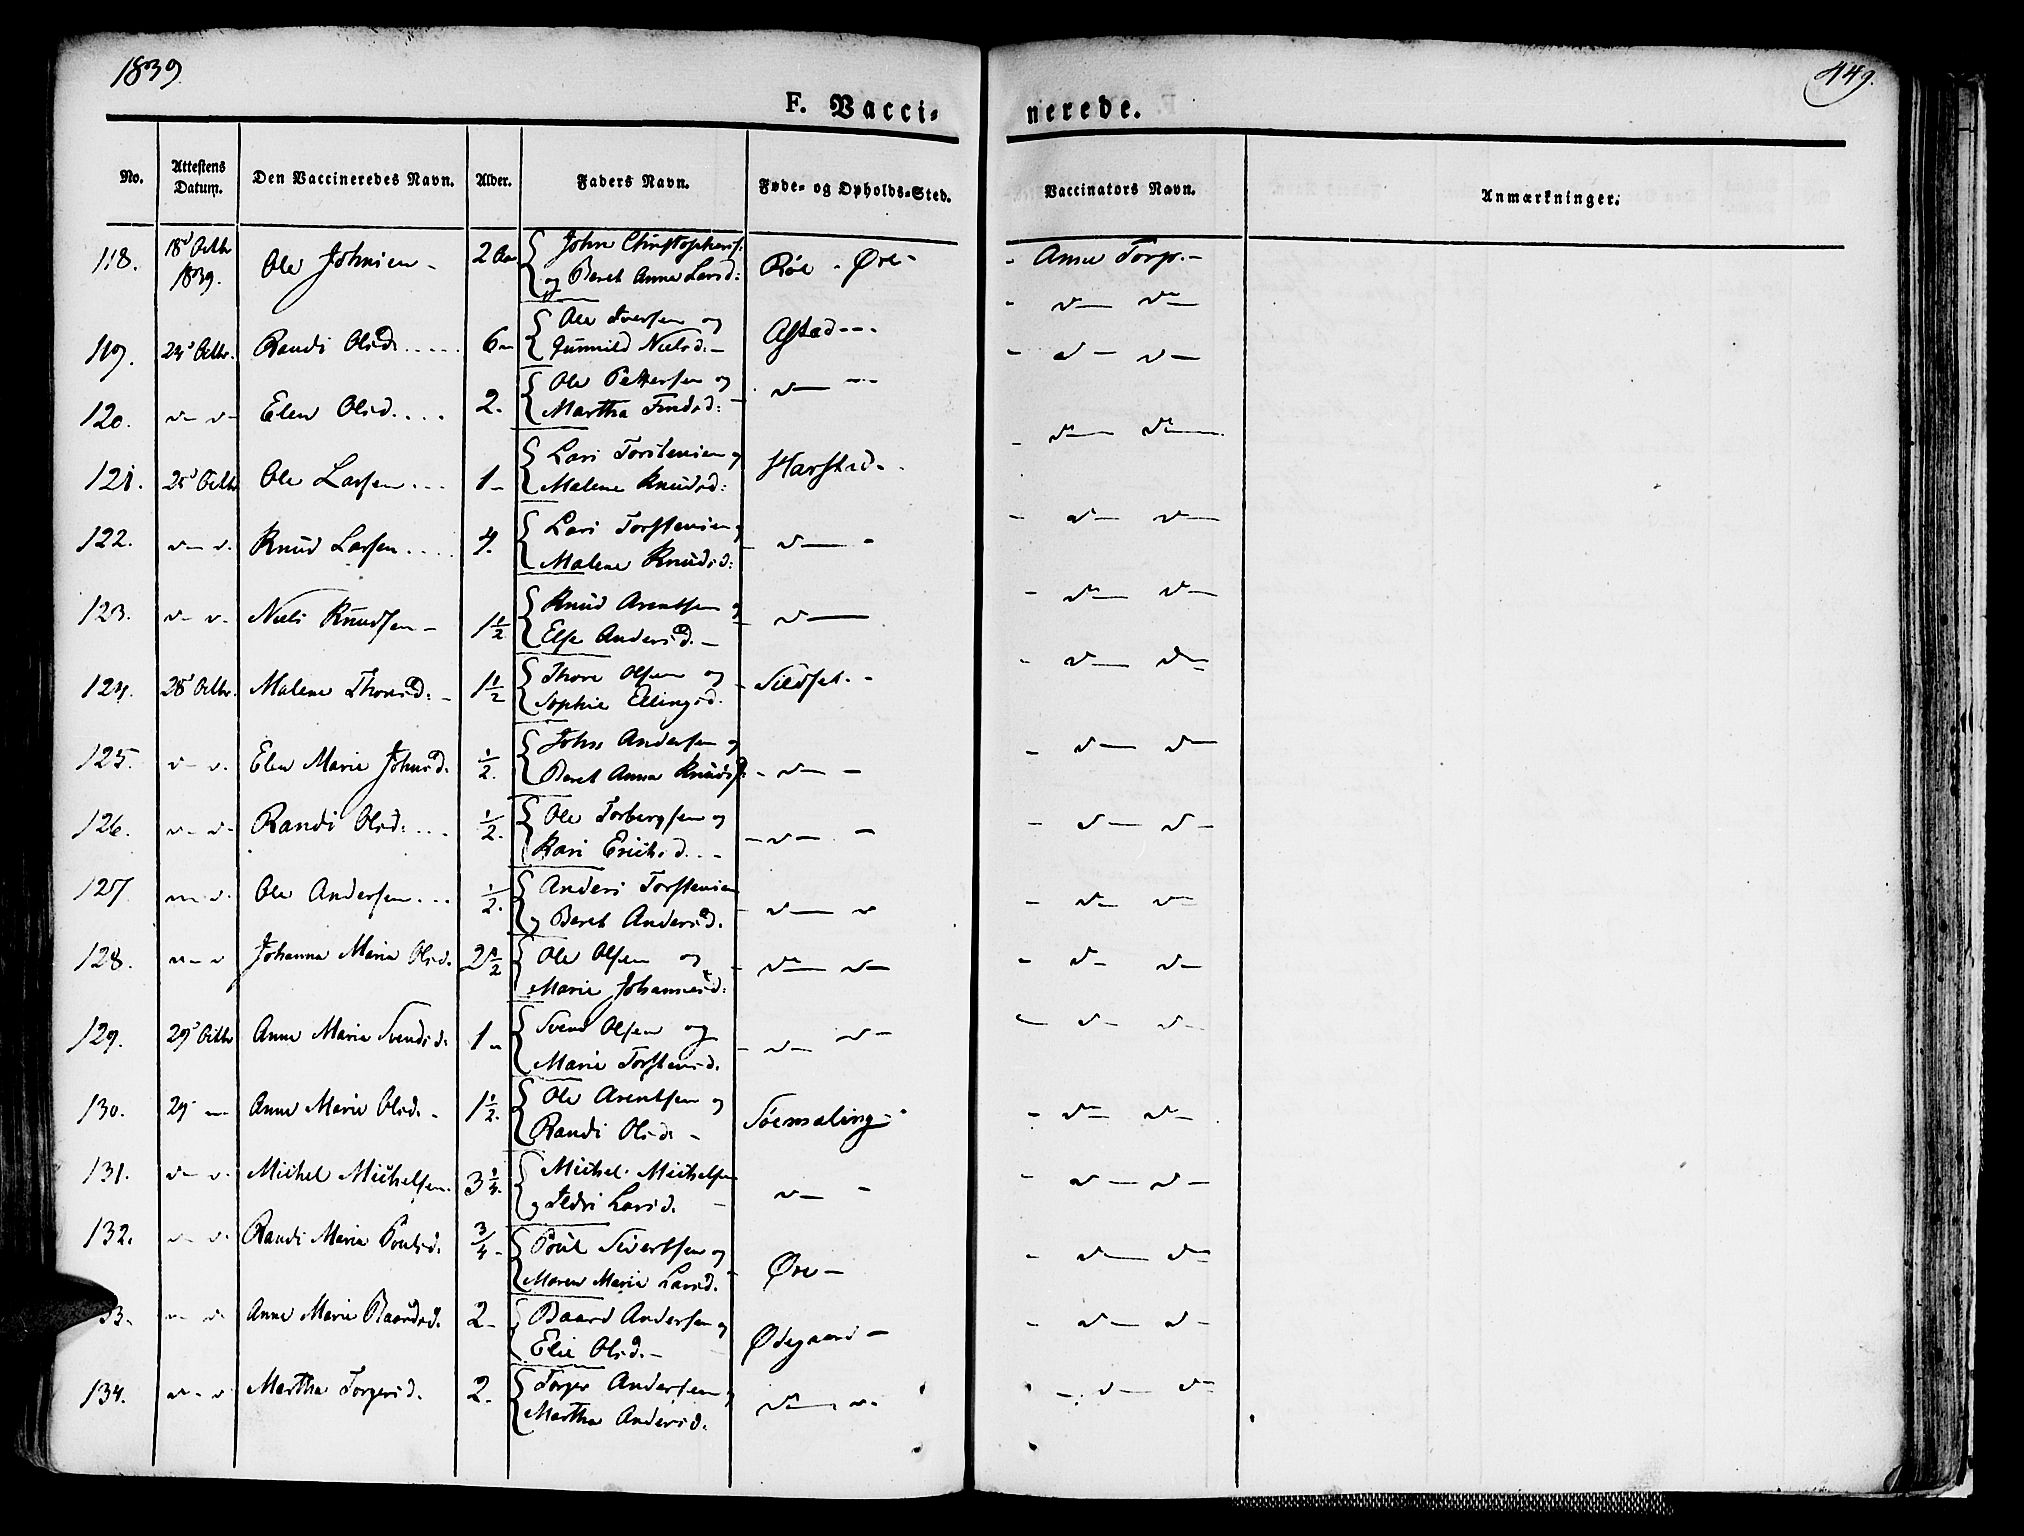 1839
449.
F. Vaccinerede.
No. Attestens Datum. Den Vaccineredes Navn. Alder. Faders Navn. Føde- og Opholds-Sted. Vaccinators Navn. Anmærkninger.
118. 18d Octbr 1839. Ole Johnsen - 2 Aar John Christophers. og Beret Anne Larsd: Röe - Øre - - Anne Torp. -
119. 23d Octbr. Randi Olsd. .... 6 - Ole Iversen og Gunnild Nielsd. - Astad - - - - v - v -
120. v - v - Elen Olsd. .... 2. Ole Pettersen og Martha Findsd: - v - - v - v -
121. 25d Octbr Ole Larsen ... 1 - Lars Torstensen og Malene Knudsd: Harstad - - v - v -
122. v - v. Knud Larsen .... 4. Lars Torstensen og Malene Knudsd: - v - - - v - v -
123. v - v. Niels Knudsen - 1 1/2 Knud Arentsen og Else Andersd. - - v - - v - v -
124. 28d Octbr. Malene Thoresd: - 1 1/2 Thore Olsen og Sophie Ellingsd. - Sildset. - - v - v -
125. v - v. Elen Marie Johnsd. 1/2. John Andersen og Beret Anna Knudsd: - v - - - v - v -
126. v - v - Randi Olsd: ... 1/2. Ole Torbergsen og Kari Erichsd. .. - - v - - - v - v -
127. v - v. Ole Andersen ... 1/2. Anders Torstensen og Beret Andersd. - v - v - v - v -
128. v - v Johanna Maria Olsd. 2 1/2 Ole Olsen og Marie Johannesd: - v - v - - v - v -
129. 29d Octbr Anne Marie Svendsd: 1 - Svend Olsen og Marie Torstensd. - v - v - - v - v -
130. 29 - Anne Marie Olsd. - 1 1/2. Ole Arentsen og Randi Olsd: - - v - v -
131. v - v. Michel Michelsen. 3 1/4. Michel Michelsen og Ildri Larsd. - v - - - v - v -
132. v - v. Randi Maria Poulsd. 3/4 - Poul Sivertsen og Maren Marie Larsd. Øre - - v - v -
33. v - v Anne Marie Baardsd. 2 - Baard Andersen og Elie Olsd. - Ødegaard - - v - v -
134. v - v Martha Torgersd. 2. Torger Andersen og Martha Andersd. v - v - - v - v -